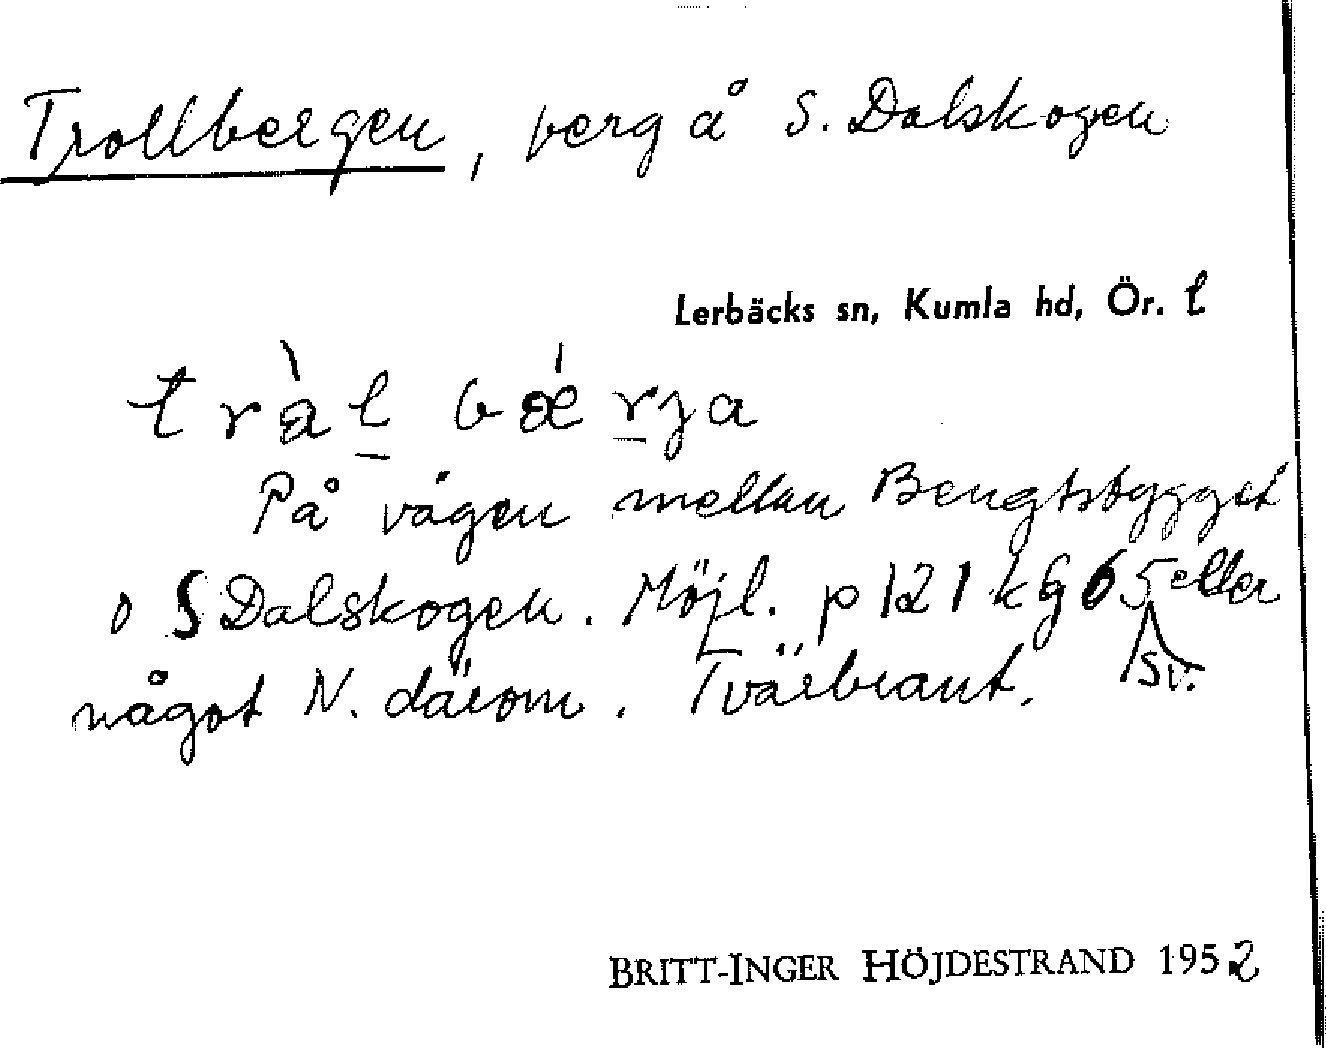 Trollbergen, berg å S. Dalskogen
Lerbäcks sn, Kumla hd, Ör. l
tràl bǽrja
På vägen mellan Bengtsbygget
o S Dalskogen. Möjl. p 121 k 9G 65 eller
sv.
något N. därom. Tvärbrant.
BRITT-INGER HÖJDESTRAND 1952